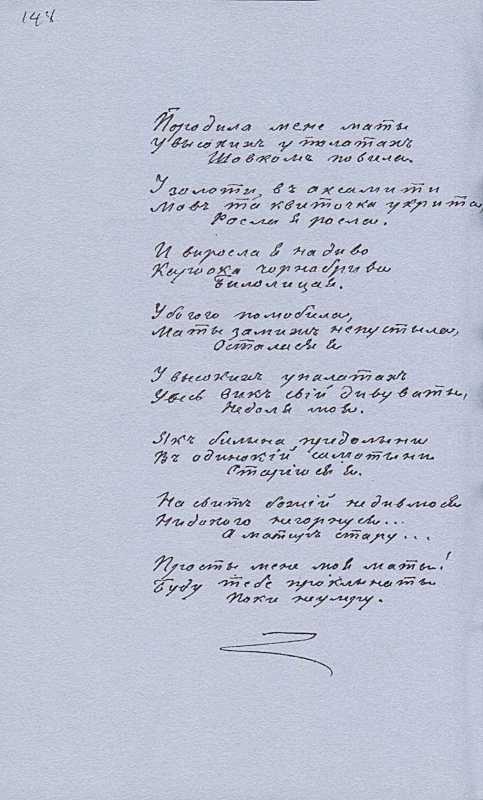 147
Породила мене маты
У высокихъ у полатахъ
Шовкомъ повила.
У золоти, въ аксамити
Мовъ та квиточка укрита,
Росла я росла.
И виросла я на диво
Кароока чорнобрива
Билолицая.
Убогого полюбила,
Маты замижъ непустыла,
Осталася я
У высокихъ упалатахъ
Увесь викъ свій дивуваты,
Недоля моя.
Якъ билина придолыни
Въ одинокій самотыни
Старіюся я.
На свитъ божій недивлюся
Нидокого негорнуся...
А матиръ стару...
Просты мене моя маты!
Буду тебе проклынаты
Поки неумру.